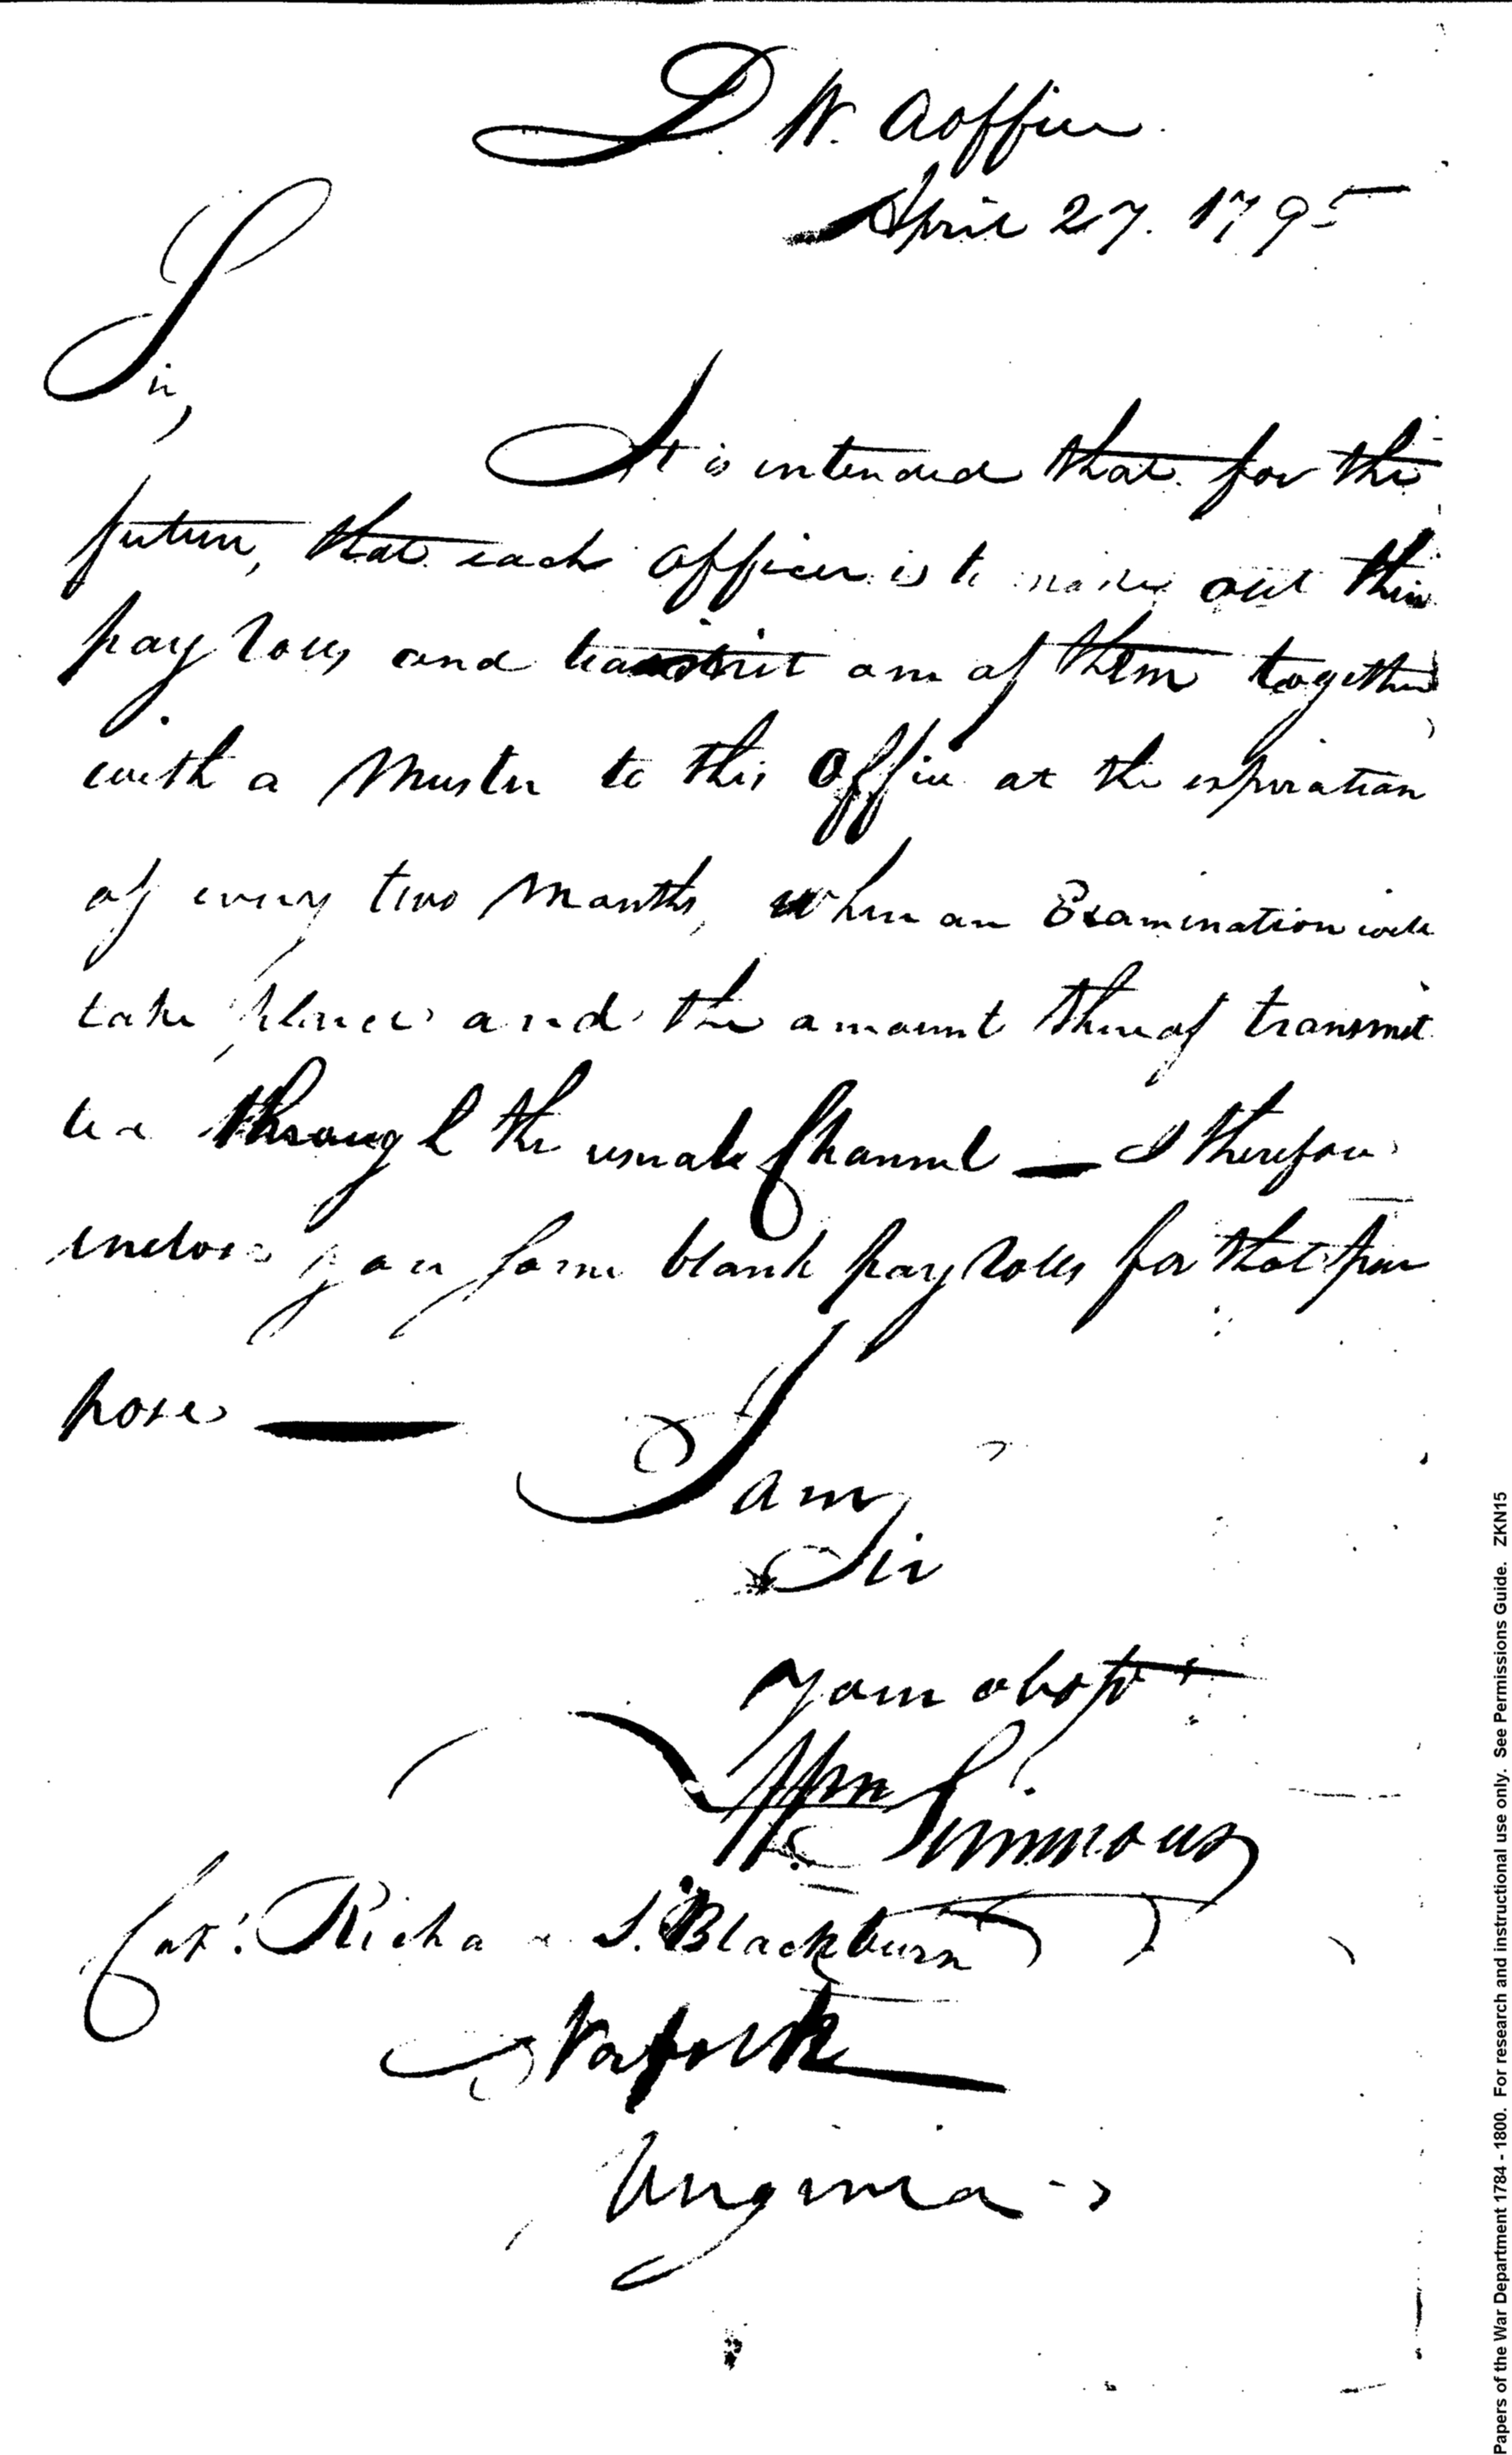 D. W. Aoffice
April 27. 1795
Sir,
It is intended that for the
future, that each officer is to make out their
pay rolls and transmit one of them together
with a Muster to this Office at the expiration
of every two Months, when an Examination will
take place and the amount thereof transmit
ted through the usuale Channel — I therefore
inclose you some blank pay rolls for that pur
pose —
I am
Sir
your obdt
Wm Simmons
Cat. Richard S. Blackburn
Norfolk
Virginia
Papers of the War Department 1784 - 1800. For research and instructional use only. See Permissions Guide. ZKN15